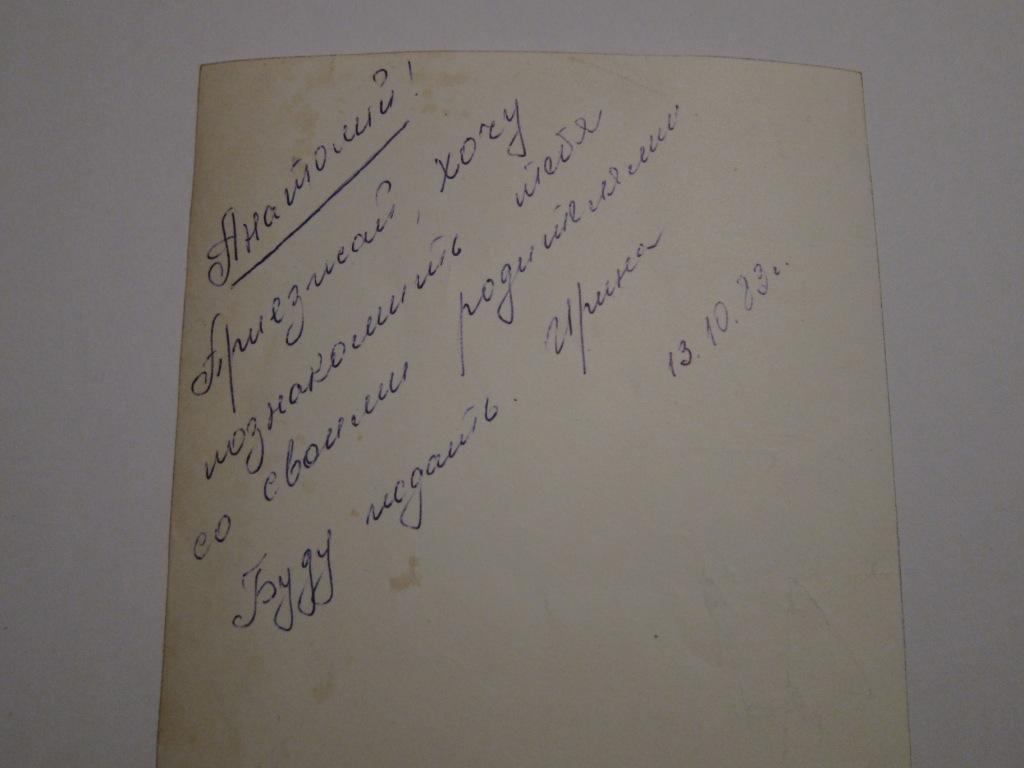 Анатолий!
Приезжай, хочу
познакомить тебя
со своими родителями.
Буду ждать. Ирина
13.10.83г.